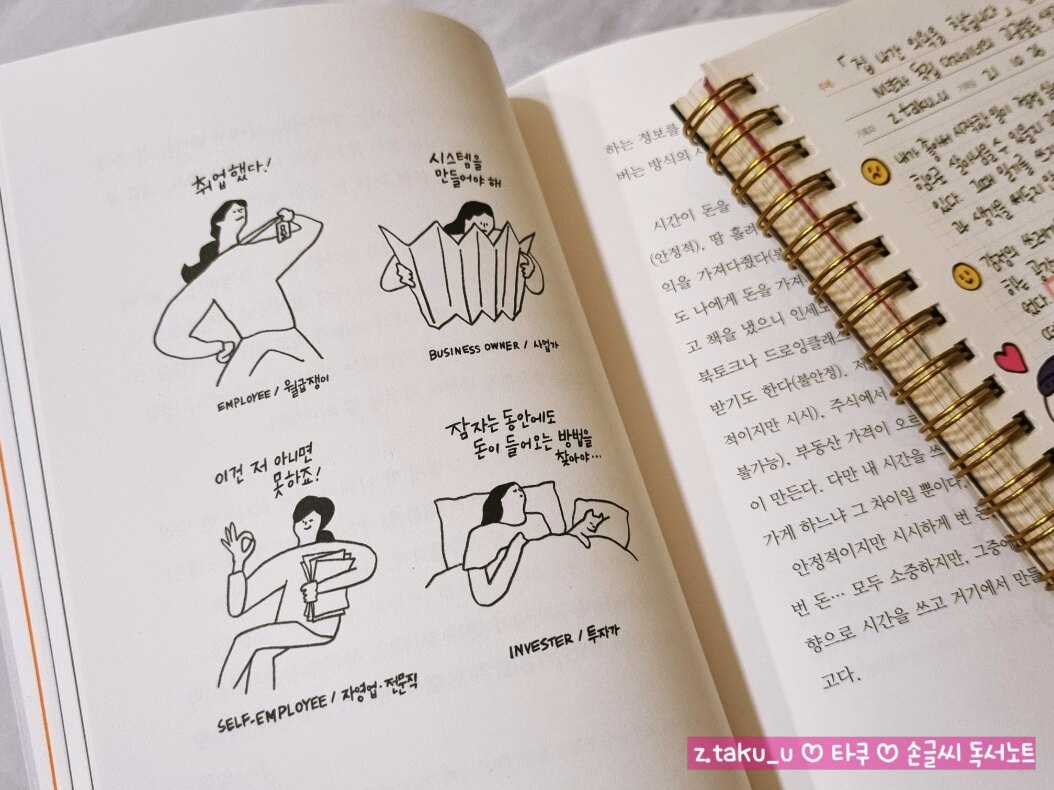 취업했다!
EMPLOYEE / 월급쟁이
시스템을
만들어야 해
BUSINESS OWNER / 사업가
이건 저 아니면
못하죠!
SELF-EMPLOYEE / 자영업·전문직
잠자는 동안에도
돈이 들어오는 방법을
찾아야...
INVESTER / 투자가
하는 정보를
버는 방식의
시간이 돈을
(안정적), 땀 흘려
익을 가져다줬다(불
도 나에게 돈을 가져
고 책을 냈으니 인세도
북토크나 드로잉클래스
받기도 한다(불안정). 저
적이지만 시시). 주식에서
불가능). 부동산 가격이 오르
이 만든다. 다만 내 시간을 쓰
가게 하느냐 그 차이일 뿐이다.
안정적이지만 시시하게 번 돈
번 돈… 모두 소중하지만, 그중에
향으로 시간을 쓰고 거기에서 만들
고다.
z.taku_u
21 10 26
있다.
z.taku_u ♡ 타쿠 ♡ 손글씨 독서노트